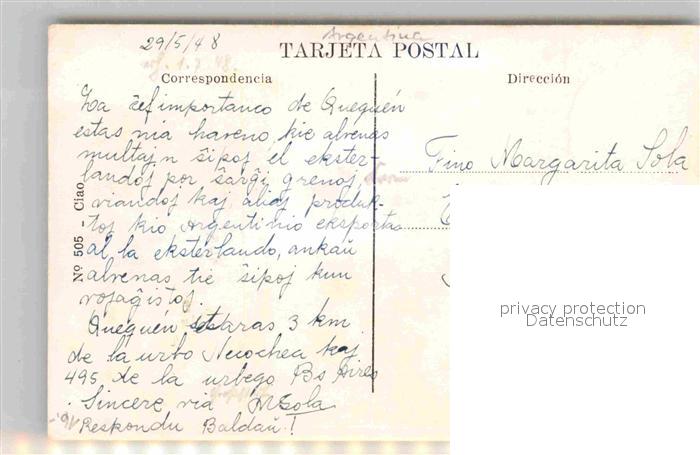 Argentina
29/5/48
TARJETA POSTAL
Correspondencia
Dirección
La ĉef importanco de Quequén
estas nia haveno, kie alvenas
multajn ŝipoj el ekster-
landoj por ŝarĝi grenoj,
viandoj kaj aliaj produk-
toj kio Argentinio eksportas
al la eksterlando, ankaŭ
alvenas tie ŝipoj kun
vojaĝistoj.
Quequén staras 3 km
de la urbo Necochea kaj
495 de la urbego Bs Aires
Sincere via MSola
Respondu Baldaŭ!
Fino Margarita Sola
Nº 505 - Ciao
privacy protection
Datenschutz